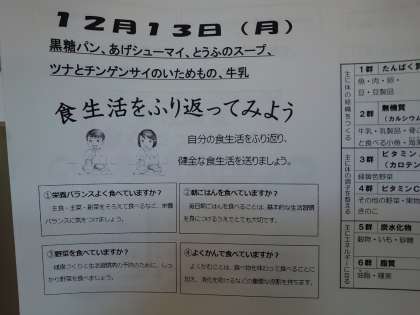 12月13日（月）
黒糖パン、あげシューマイ、とうふのスープ、
ツナとチンゲンサイのいためもの、牛乳
食生活をふり返ってみよう
自分の食生活をふり返り、
健全な食生活を送りましょう。
①栄養バランスよく食べていますか？
主食・主菜・副菜をそろえて食べるなど、栄養
バランスに気をつけましょう。
②朝ごはんを食べていますか？
毎日朝ごはんを食べることは、基本的な生活習慣
を身につけるうえでとても大切です。
③野菜を食べていますか？
健康づくりと生活習慣病の予防のために、しっ
かり野菜を食べましょう。
④よくかんで食べていますか？
よくかむことは、食べ物を味わって食べることに
加え、消化を助けるなどの重要な役割を持ちます。
主に体の組織をつくる
1群 たんぱく質
魚・肉・卵・
豆・豆製品
2群 無機質
（カルシウム
牛乳・乳製品・骨ご
と食べる小魚・海藻
主に体の調子を整える
3群 ビタミン
（カロテン
緑黄色野菜
4群 ビタミン
その他の野菜・果物
きのこ
主にエネルギーになる
5群 炭水化物
穀物・いも・砂糖
6群 脂質
油脂・種実